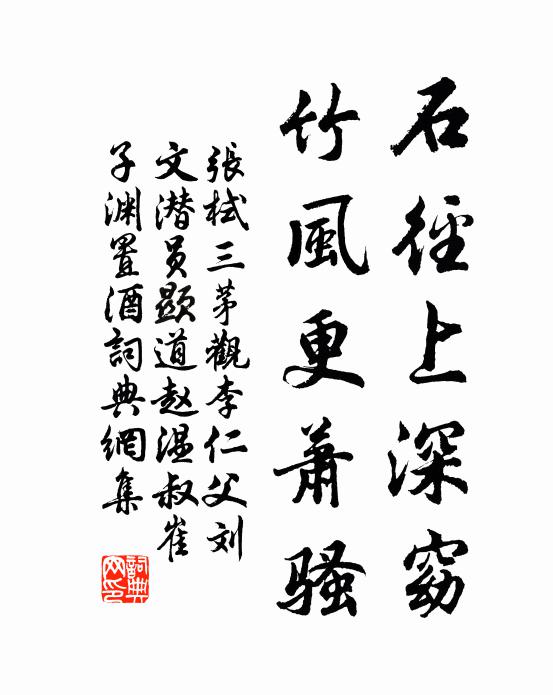 石徑上深窈
竹風更蕭騷
張栻三茅觀李仁父刘
文潜员顯道赵温叔崔
子渊置酒詞典網集
詞典
网印